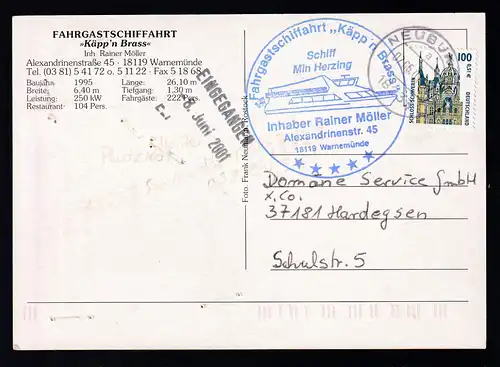 FAHRGASTSCHIFFAHRT
»Käpp'n Brass«
Inh. Rainer Möller
Alexandrinenstraße 45 · 18119 Warnemünde
Tel. (03 81) 5 41 72 o. 5 11 22 · Fax 5 18 68
Baujahr: 1995 Länge: 26,10 m
Breite: 6,40 m Tiefgang: 1,30 m
Leistung: 250 kW Fahrgäste: 222 Pers.
Restaurant: 104 Pers.
EINGEGANGEN
Juni 2001
Foto: Frank Neumann, Rostock
Fahrgastschiffahrt „Käpp'n Brass“
Schiff
Min Herzing
Inhaber Rainer Möller
Alexandrinenstr. 45
18119 Warnemünde
NEUBU
100
0,51 €
DEUTSCHLAND
Domäne Service GmbH
x. Co.
37181 Hardegsen
Schulstr. 5